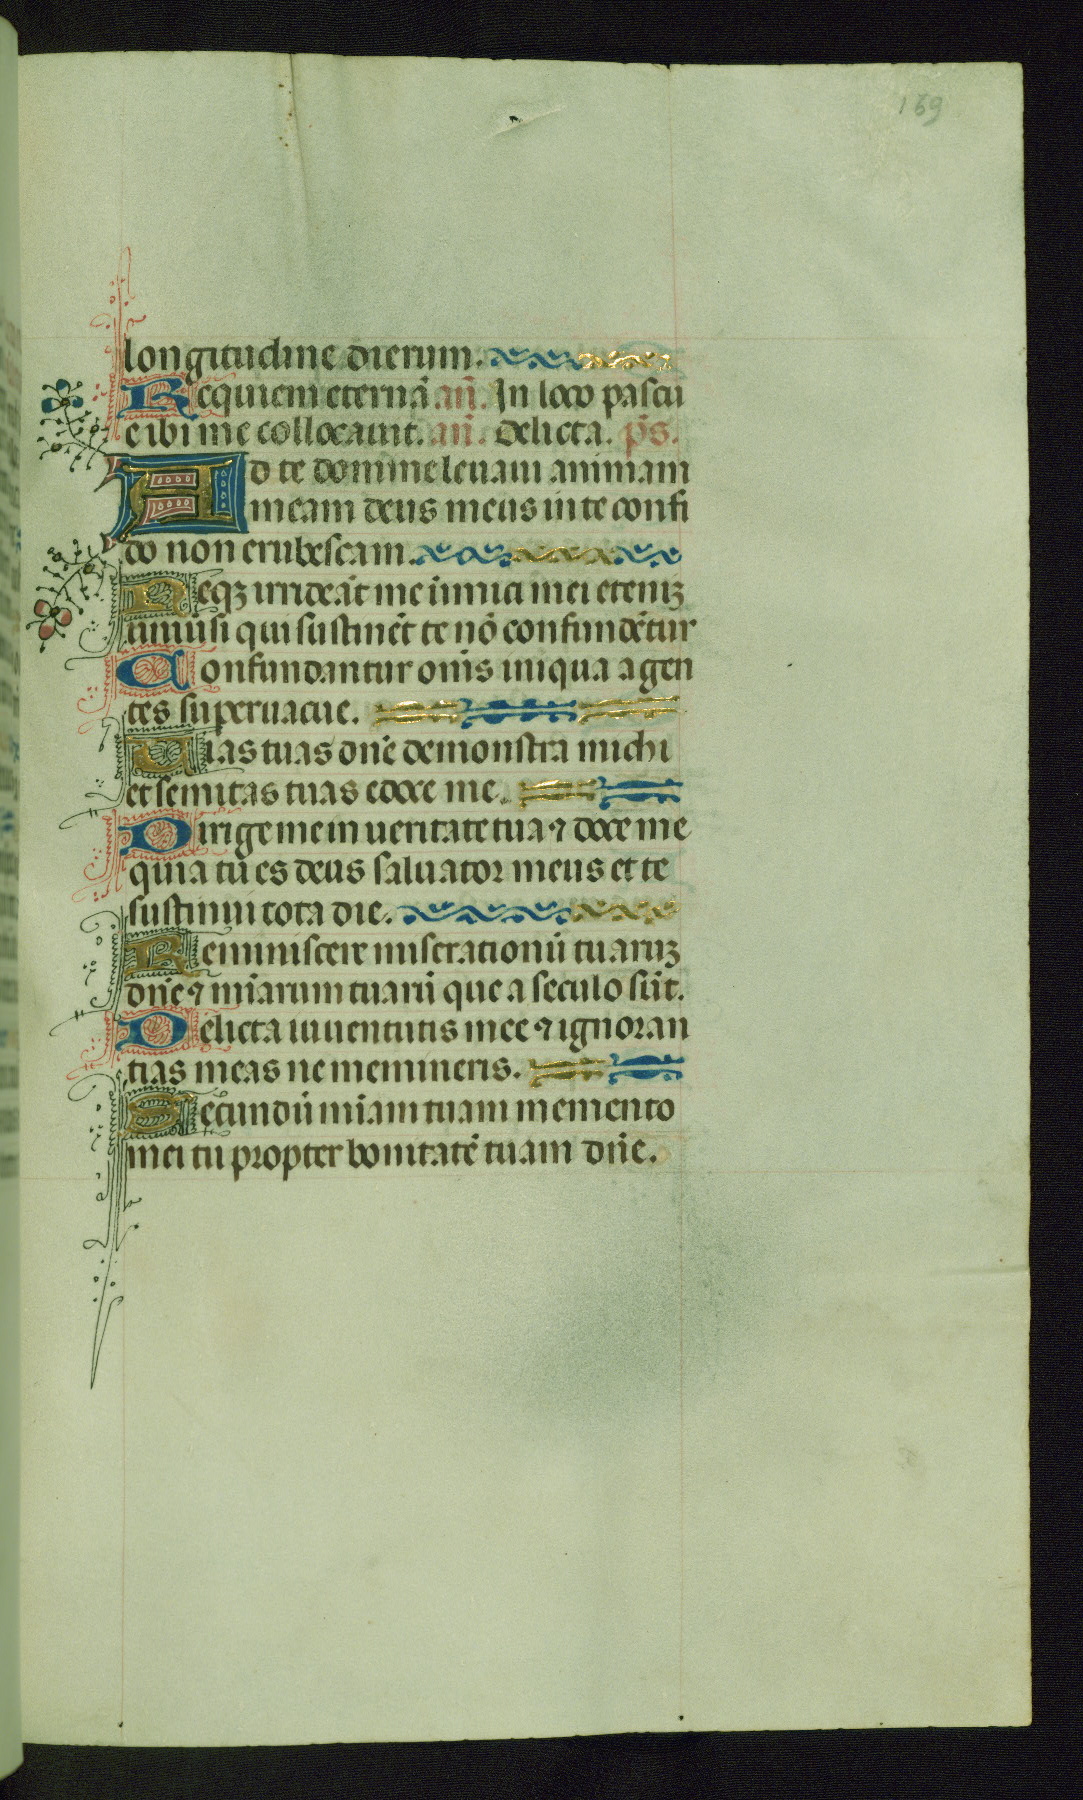 159
longitudine dierum.
Requiem eternā an̄. In loco pascu
e ibi me collocauit. an̄. Delicta. p̄s.
Ad te domine leuaui animam
meam deus meus in te confi
do non erubescam.
Neqꝫ irrideāt me inimici mei etenīꝫ
uniuersi qui sustinēt te nō confundētur
Confundantur om̄s iniqua agen
tes superuacue.
Uias tuas dn̄e demonstra michi
et semitas tuas edoce me.
Dirige me in ueritate tua ⁊ doce me
quia tu es deus saluator meus et te
sustinui tota die.
Reminiscere miserationū tuarūꝫ
dn̄e ⁊ mīarum tuarū que a seculo sūt.
Delicta iuuentutis mee ⁊ ignoran
tias meas ne memineris.
Secundū mīam tuam memento
mei tu propter bonitatē tuam dn̄e.